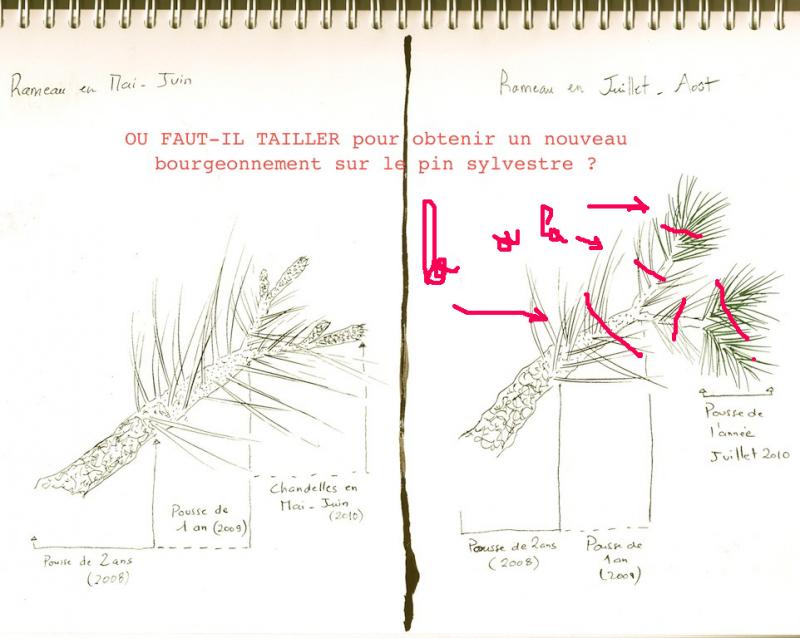 Rameau en Mai - Juin
Rameau en Juillet - Août
OU FAUT-IL TAILLER pour obtenir un nouveau
bourgeonnement sur le pin sylvestre ?
Là
où
Là
Chandelles en
Mai - Juin
(2010)
Pousse de
1 an (2009)
Pousse de 2 ans
(2008)
Pousse de
l'année
Juillet 2010
Pousse de 2 ans
(2008)
Pousse de
1 an
(2009)